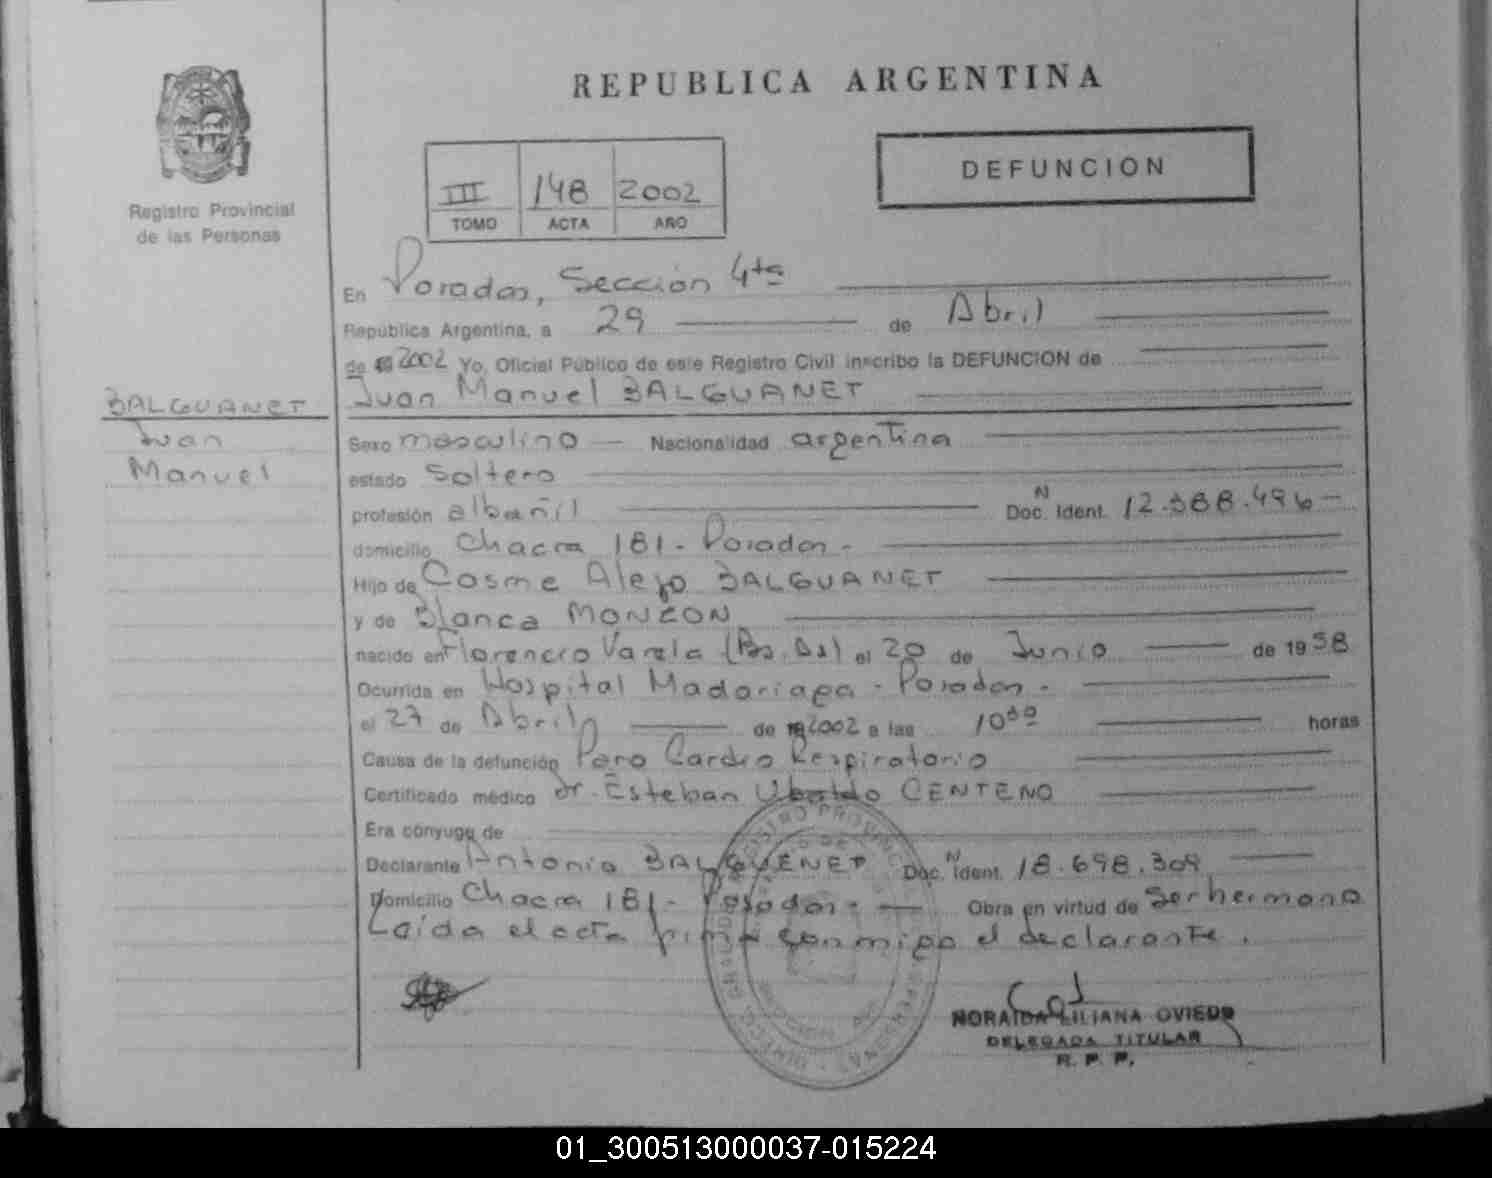 REPUBLICA ARGENTINA
DEFUNCION
III 148 2002
TOMO ACTA AÑO
Registro Provincial
de las Personas
En Posadas, Sección 4ta
República Argentina, a 29 de Abril
de 2002 Yo, Oficial Público de este Registro Civil inscribo la DEFUNCION de
Juan Manuel BALGUANET
BALGUANET
Juan
Manuel
Sexo masculino Nacionalidad argentina
estado Soltero
profesión albañil Doc. Ident. N 12.388.496
domicilio Chacra 181 - Posadas -
Hijo de Cosme Alejo BALGUANET
y de Blanca MONZON
nacido en Florencio Varela (Bs. As) el 20 de Junio de 1958
Ocurrida en Hospital Madariaga - Posadas -
el 27 de Abril de 2002 a las 10³⁰ horas
Causa de la defunción Paro Cardio Respiratorio
Certificado médico dr. Esteban Ubaldo CENTENO
Era cónyuge de
Declarante Antonio BALGUENET Doc. Ident. N 18.698.309
Domicilio Chacra 181 - Posadas - Obra en virtud de Ser hermano
Leída el acta firma conmigo el declarante.
NORAIDA LILIANA OVIEDO
DELEGADA TITULAR
R. P. P.
01_300513000037-015224